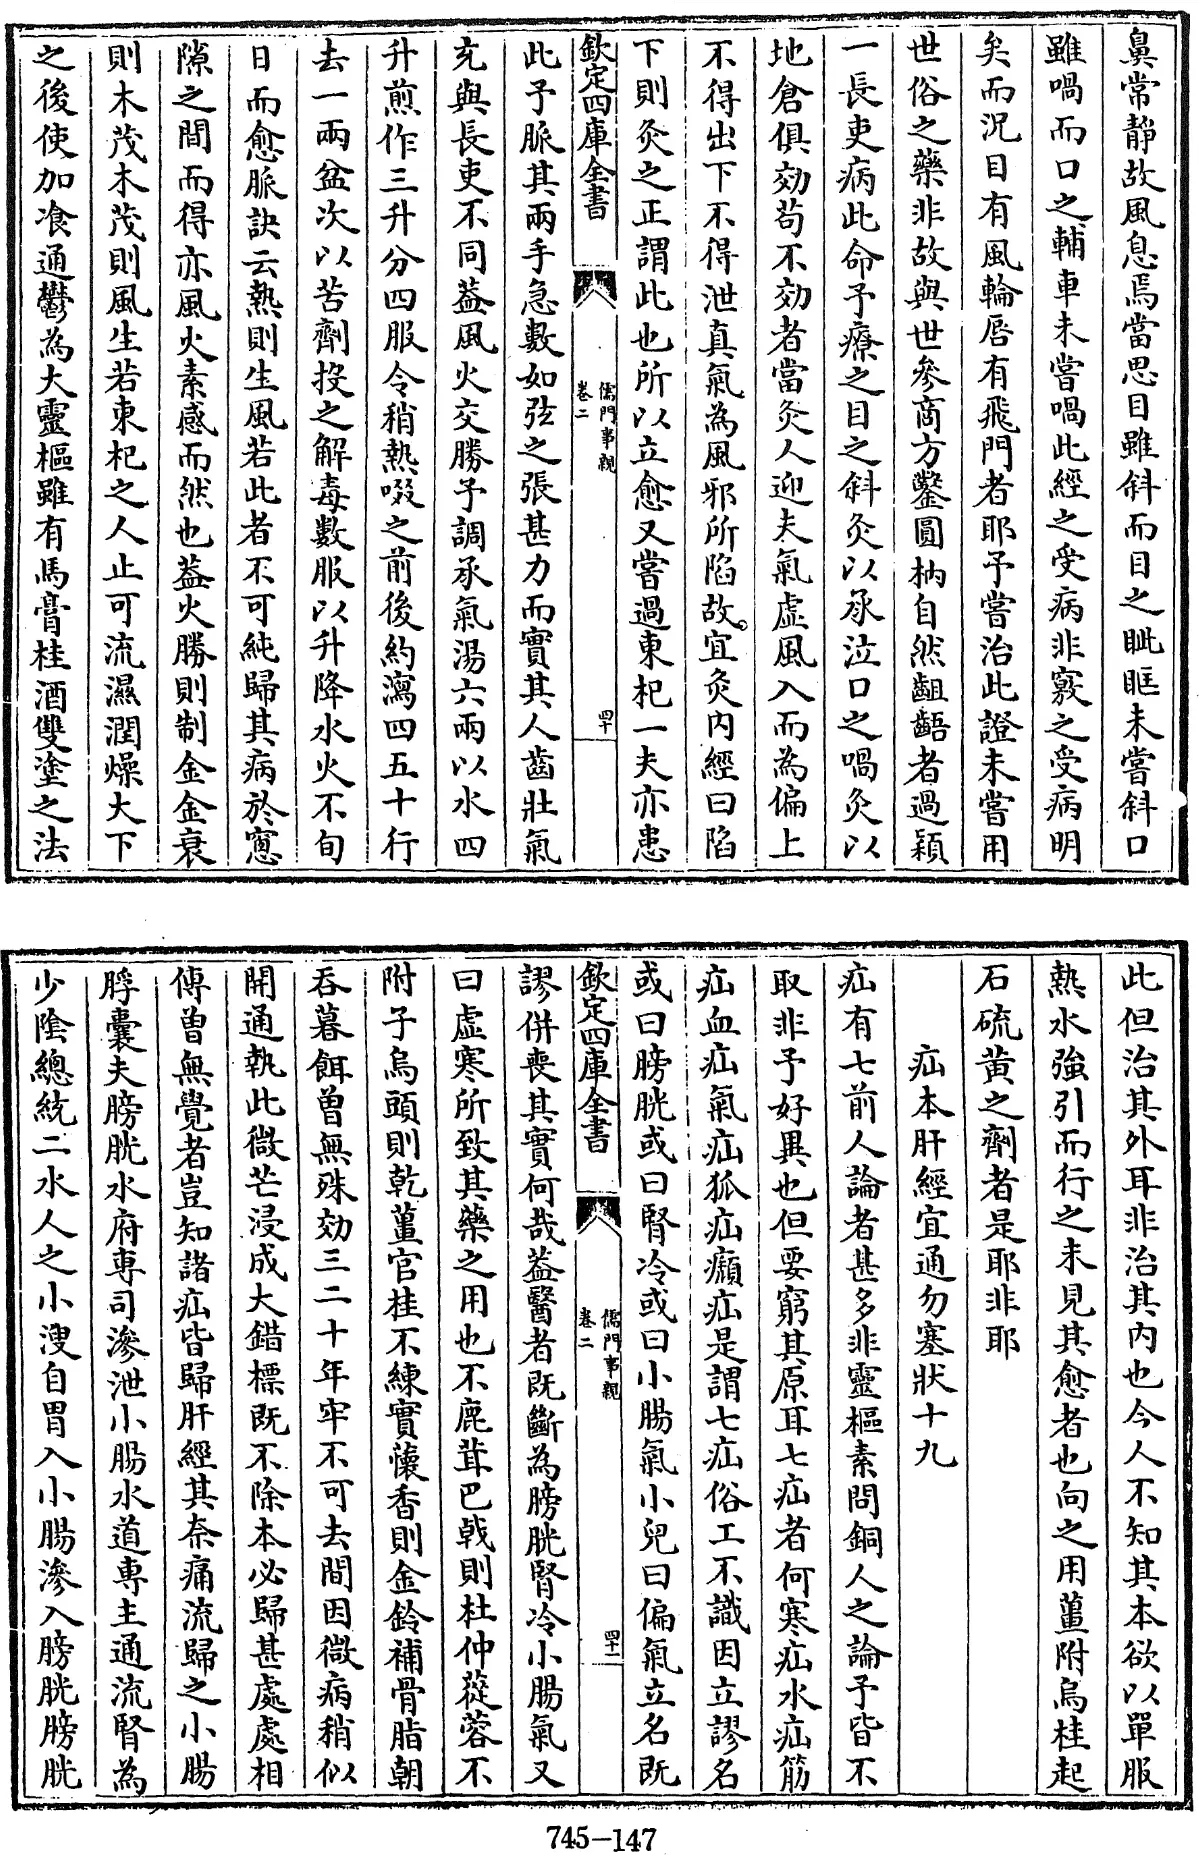 鼻常靜故風息焉當思目雖斜而目之眦眶未嘗斜口
雖喎而口之輔車未嘗喎此經之受病非竅之受病明
矣而況目有風輪唇有飛門者耶予嘗治此證未嘗用
世俗之藥非故與世參商方鑿圓枘自然齟齬者過潁
一長吏病此命予療之目之斜灸以承泣口之喎灸以
地倉俱効苟不効者當灸人迎夫氣虛風入而為偏上
不得出下不得泄真氣為風邪所陷故宜灸内經曰陷
下則灸之正謂此也所以立愈又嘗過東杞一夫亦患
欽定四庫全書
儒門事親
卷二
四十
此予脈其兩手急數如弦之張甚力而實其人齒壯氣
充與長吏不同葢風火交勝予調承氣湯六兩以水四
升煎作三升分四服令稍熱啜之前後約瀉四五十行
去一兩盆次以苦劑投之解毒數服以升降水火不旬
日而愈脈訣云熱則生風若此者不可純歸其病於窻
隙之間而得亦風火素感而然也葢火勝則制金金衰
則木茂木茂則風生若東杞之人止可流濕潤燥大下
之後使加飡通鬱為大靈樞雖有馬膏桂酒雙塗之法
此但治其外耳非治其内也今人不知其本欲以單服
熱水強引而行之未見其愈者也向之用薑附烏桂起
石硫黃之劑者是耶非耶
疝本肝經宜通勿塞狀十九
疝有七前人論者甚多非靈樞素問銅人之論予皆不
取非予好異也但要窮其原耳七疝者何寒疝水疝筋
疝血疝氣疝狐疝癩疝是謂七疝俗工不識因立謬名
或曰膀胱或曰腎冷或曰小腸氣小兒曰偏氣立名既
欽定四庫全書
儒門事親
卷二
四十一
謬併喪其實何哉葢醫者既斷為膀胱腎冷小腸氣又
曰虛寒所致其藥之用也不鹿茸巴戟則杜仲蓯蓉不
附子烏頭則乾薑官桂不練實蘹香則金鈴補骨脂朝
吞暮餌曾無殊効三二十年牢不可去間因微病稍似
開通執此微芒浸成大錯標既不除本必歸甚處處相
傳曾無覺者豈知諸疝皆歸肝經其奈痛流歸之小腸
脬囊夫膀胱水府專司滲泄小腸水道專主通流腎為
少陰總統二水人之小溲自胃入小腸滲入膀胱膀胱
745-147